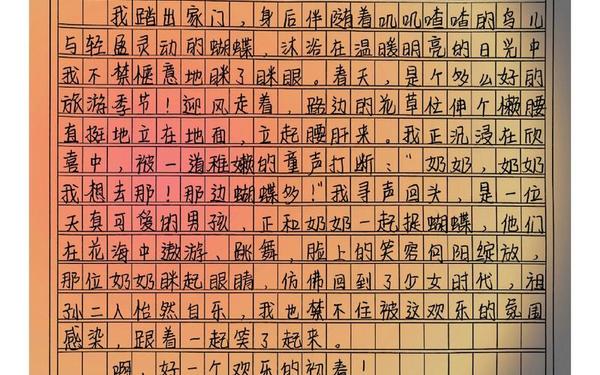 我踏出家门，身后伴随着叽叽喳喳的鸟儿
与轻盈灵动的蝴蝶，沐浴在温暖明亮的日光中
我不禁惬意地眯了眯眼。春天，是个多么好的
旅游季节！迎风走着，路边的花草住伸个懒腰
直挺地立在地面，立起腰肝来。我正沉浸在欣
喜中，被一道稚嫩的童声打断：“奶奶，奶奶
我想去那！那边蝴蝶多！”我寻声回头，是一位
天真可爱的男孩，正和奶奶一起捉蝴蝶，他们
在花海中遨游、跳舞，脸上的笑容向阳绽放，
那位奶奶眯起眼睛，仿佛回到了少女时代，祖
孙二人怡然自乐，我也禁不住被这欢乐的氛围
感染，跟着一起笑了起来。
啊，好一个欢乐的初春！